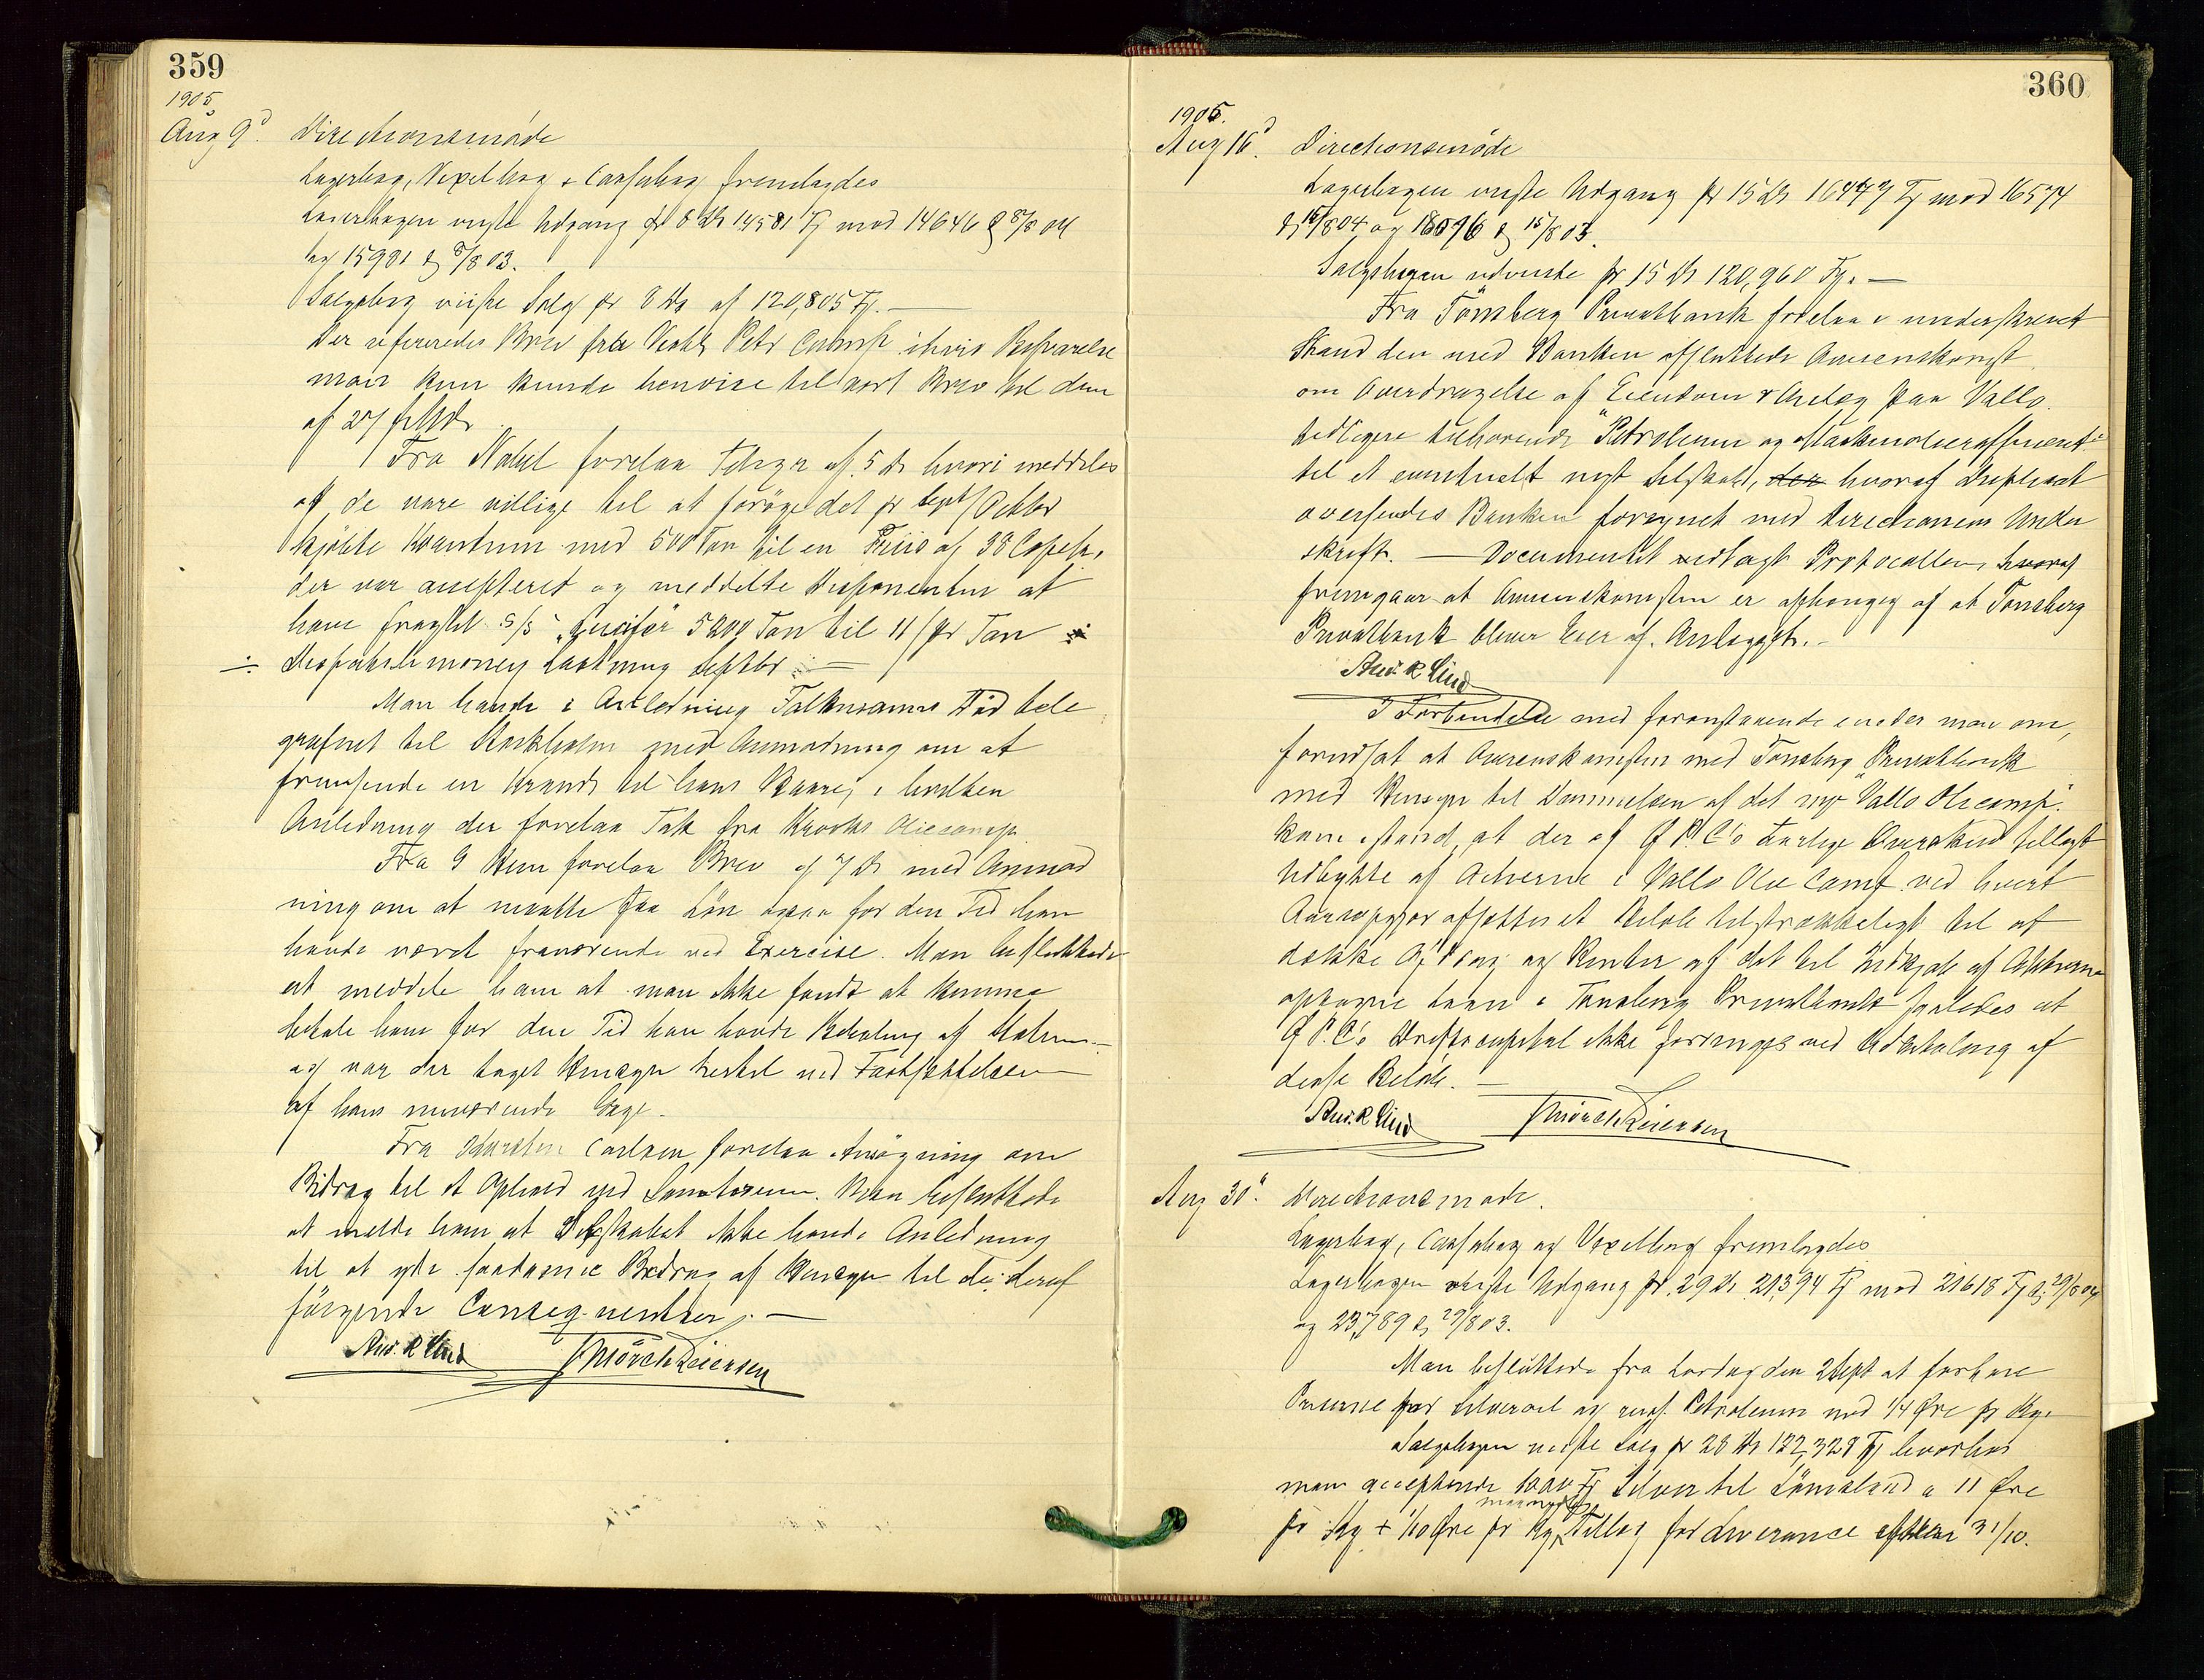 359
1905
Aug 9d. Directionsmøde
Lagerbog, Vexelbog & Cassabog fremlagdes
Lagerbogen viiste Udgang pr 8 ds 14581 Fj mod 14646 d 8/8 04
og 15981 d 8/8 03.
Salgsbog viiste Salg pr 8 ds af 120,805 Fj. —
Der refereredes Brev fra Petr Comp. i hvis Besvarelse
man kun kunde henvise til vort Brev til dem
af 27
Fra Nobel forelaa Telegr af 5 ds hvori meddeles
at de vare villige til at forøge det pr Sept/Octbr
kjøbte Kvantum med 500 Ton til en Priis af 38 Copek,
der var accepteret og meddelte Disponenten at
have fragtet S/S "Lucifer" 5200 Ton til 11/ pr Ton
÷ Dispatchmoney Lastning Septbr. —
Man havde i Anledning Falkmans Død tele
graferet til Stockholm med Anmodning om at
fremsende en Krands til hans Baare, i hvilken
Anledning der forelaa Tak fra Oliecomp.
Fra G forelaa Brev af 7 ds med Anmod
ning om at maatte faa Løn ogsaa for den Tid han
havde været fraværende ved Exercise. Man besluttede
at meddele ham at man ikke fandt at kunne
betale ham for den Tid han havde Betaling af Staten —
og var der taget Hensyn hertil ved Fastsættelsen
af hans nuværende Gage.
Fra Carlsen forelaa Ansøgning om
Bidrag til et Ophold ved Sanatorium. Man besluttede
at melde ham at Selskabet ikke havde Anledning
til at yde saadanne Bidrag af Hensyn til de deraf
følgende Consequentser. —
And. R Lind J Mørch Reiersen
360
1905.
Aug 16d. Directionsmøde
Lagerbogen viiste Udgang pr 15 ds 16477 Fj mod 16574
d 15/8 04 og 18596 d 15/8 03.
Salgsbogen udviste pr 15 ds 120,960 Fj. —
Fra Tönsberg Privatbank forelaa i underskrevet
Stand den med Banken afsluttede Overenskomst
om Overdragelse af Eiendom & Anlæg paa Vallø
tidligere tilhørende "Petroleum og Maskinolieraffineri"
til et eventuelt nyt Selskab, der hvoraf Duplicat
oversendes Banken forsynet med Directionens Under
skrift. — Documentet vedlagt Protocollen, hvoraf
fremgaar at Overenskomsten er afhængig af at Tönsberg
Privatbank bliver Eier af Anlægget. —
And. R Lind
I Forbindelse med foranstaaende enedes man om,
forudsat at Overenskomsten med Tönsberg Privatbank
med Hensyn til Dannelsen af det nye "Vallø Oliecomp."
kom istand, at der af Ø.P.C's aarlige Overskud tillagt
Udbytte af Actierne i Vallø Olie Comp. ved hvert
Aarsopgjør afsættes et Beløb tilstrækkeligt til at
dække Afdrag og Renter af det til Indkjøb af Aktierne
optagne Laan i Tönsberg Privatbank saaledes at
Ø.P.C's Driftscapital ikke forringes ved Udbetaling af
disse Beløb. —
And. R Lind J Mørch Reiersen
Aug 30d. Directionsmøde.
Lagerbog, Cassabog og Vexelbog fremlagdes
Lagerbogen viiste Udgang pr. 29 ds 21,394 Fj mod 21618 Fj d. 29/8 04
og 23,789 d 29/8 03.
Man besluttede fra Lørdag den 2 Sept at forhøie
Priserne for Silveroil og russ. Petroleum med 1/4 Øre pr Kg.
Salgsbogen viiste Salg pr 28 ds 122,328 Fj hvorhos
man accepterede 1000 Fj Silver til Lömsland a 11 Øre
pr Kg + 1/10 Øre pr Kg maanedlig Tillæg for Leverance efter 31/10.